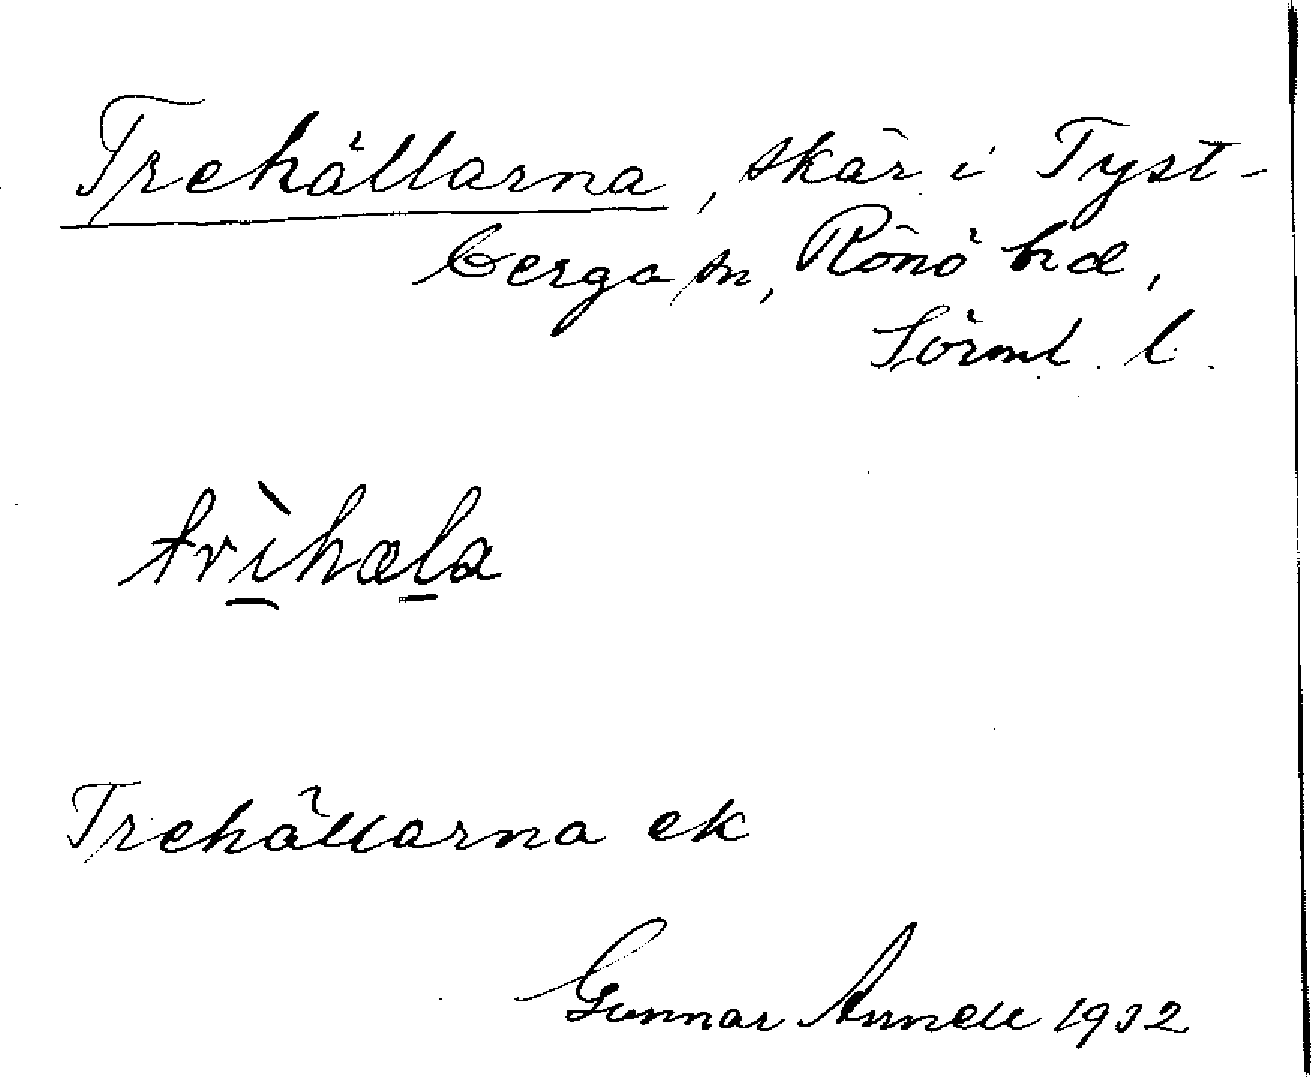 Trehällarna, skär i Tyst-
berga sn, Rönö hd,
Sörml. l.
trìhæla
Trehällarna ek
Gunnar Annell 1932